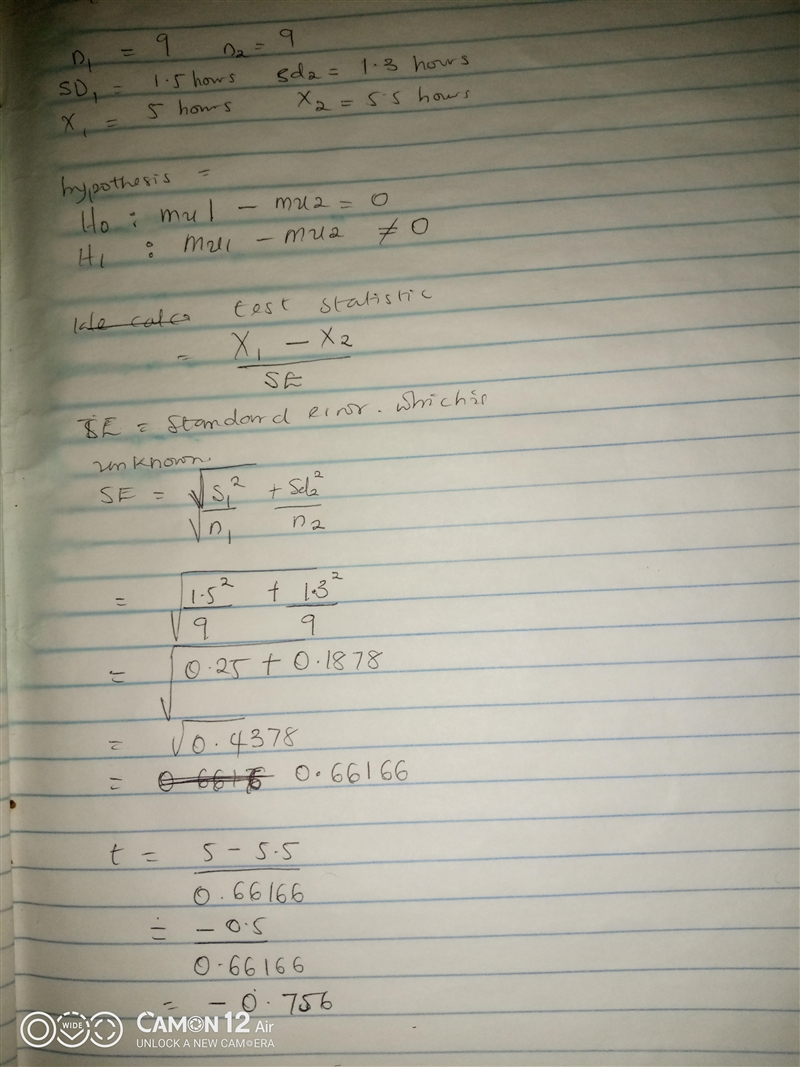 n₁ = 9 n₂ = 9
SD₁ = 1.5 hours sd₂ = 1.3 hours
X₁ = 5 hours X₂ = 5.5 hours
hypothesis =
H₀ : mu1 - mu2 = 0
H₁ : mu1 - mu2 ≠ 0
test statistic
= X₁ - X₂
SE
SE = Standard error. which is
unknown.
SE = √S₁² + Sd₂²
√n₁ n₂
= √1.5² + 1.3²
9 9
= √0.25 + 0.1878
= √0.4378
= 0.66166
t = 5 - 5.5
0.66166
= -0.5
0.66166
= -0.756
WIDE CAMON 12 Air
UNLOCK A NEW CAMERA